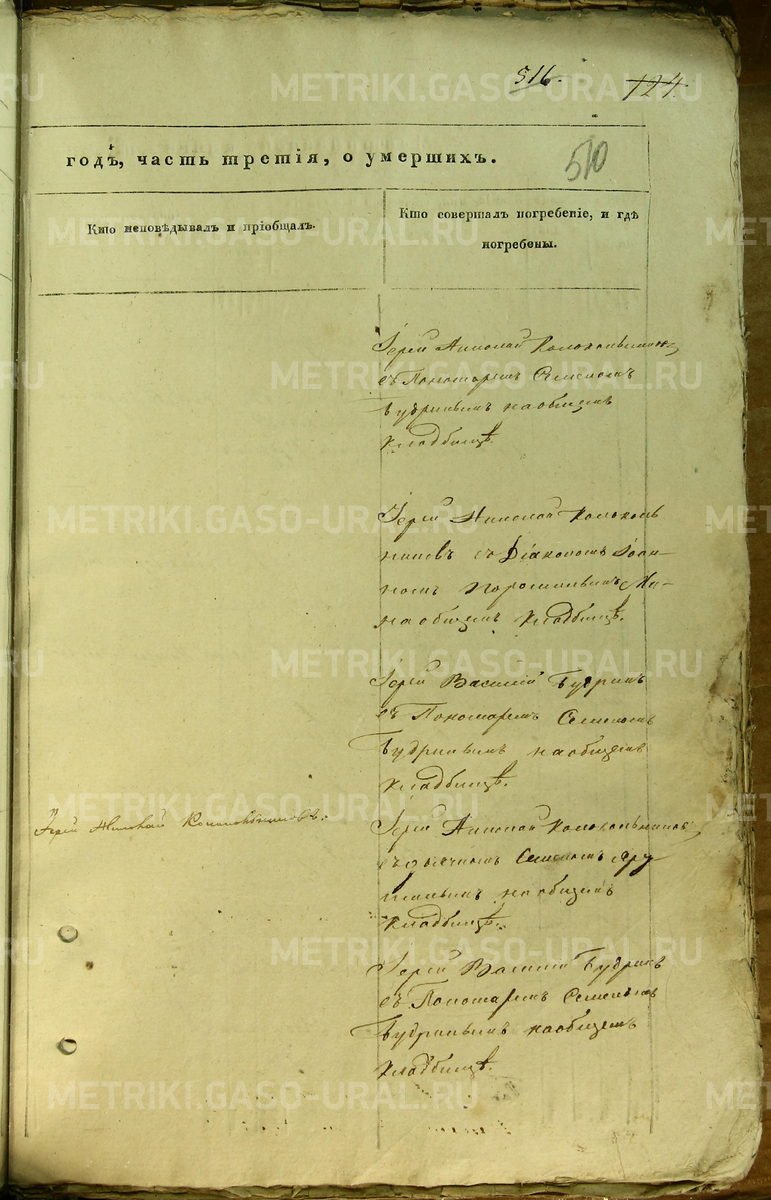 516.
124.
510
годъ, часть третія, о умершихъ.
Кто исповѣдывалъ и пріобщалъ.
Кто совершалъ погребеніе, и гдѣ
погребены.
Іерей Николай Колокольников
съ Пономаремъ Семеномъ
Будринымъ на общемъ
кладбищѣ.
Іерей Николай Колоколь
никовъ съ Діакономъ Іоан-
номъ
на общемъ кладбищѣ.
Іерей Василій Будринъ
съ Пономаремъ Семеномъ
Будринымъ на общемъ
кладбищѣ.
Іерей Николай Колокольниковъ.
Іерей Николай Колокольников
съ дьячкомъ Семеномъ
на общемъ
кладбищѣ.
Іерей Василій Будринъ
съ Пономаремъ Семеномъ
Будринымъ на общемъ
кладбищѣ.
METRIKI.GASO-URAL.RU